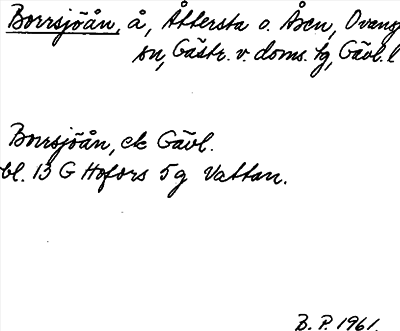 Borrsjöån, å, Åttersta o. Åsen, Ovansj
sn, Gästr. v. doms. tg, Gävl. l
Borrsjöån, ek Gävl.
bl. 13 G Hofors 5 g Vattan.
B. P. 1961.